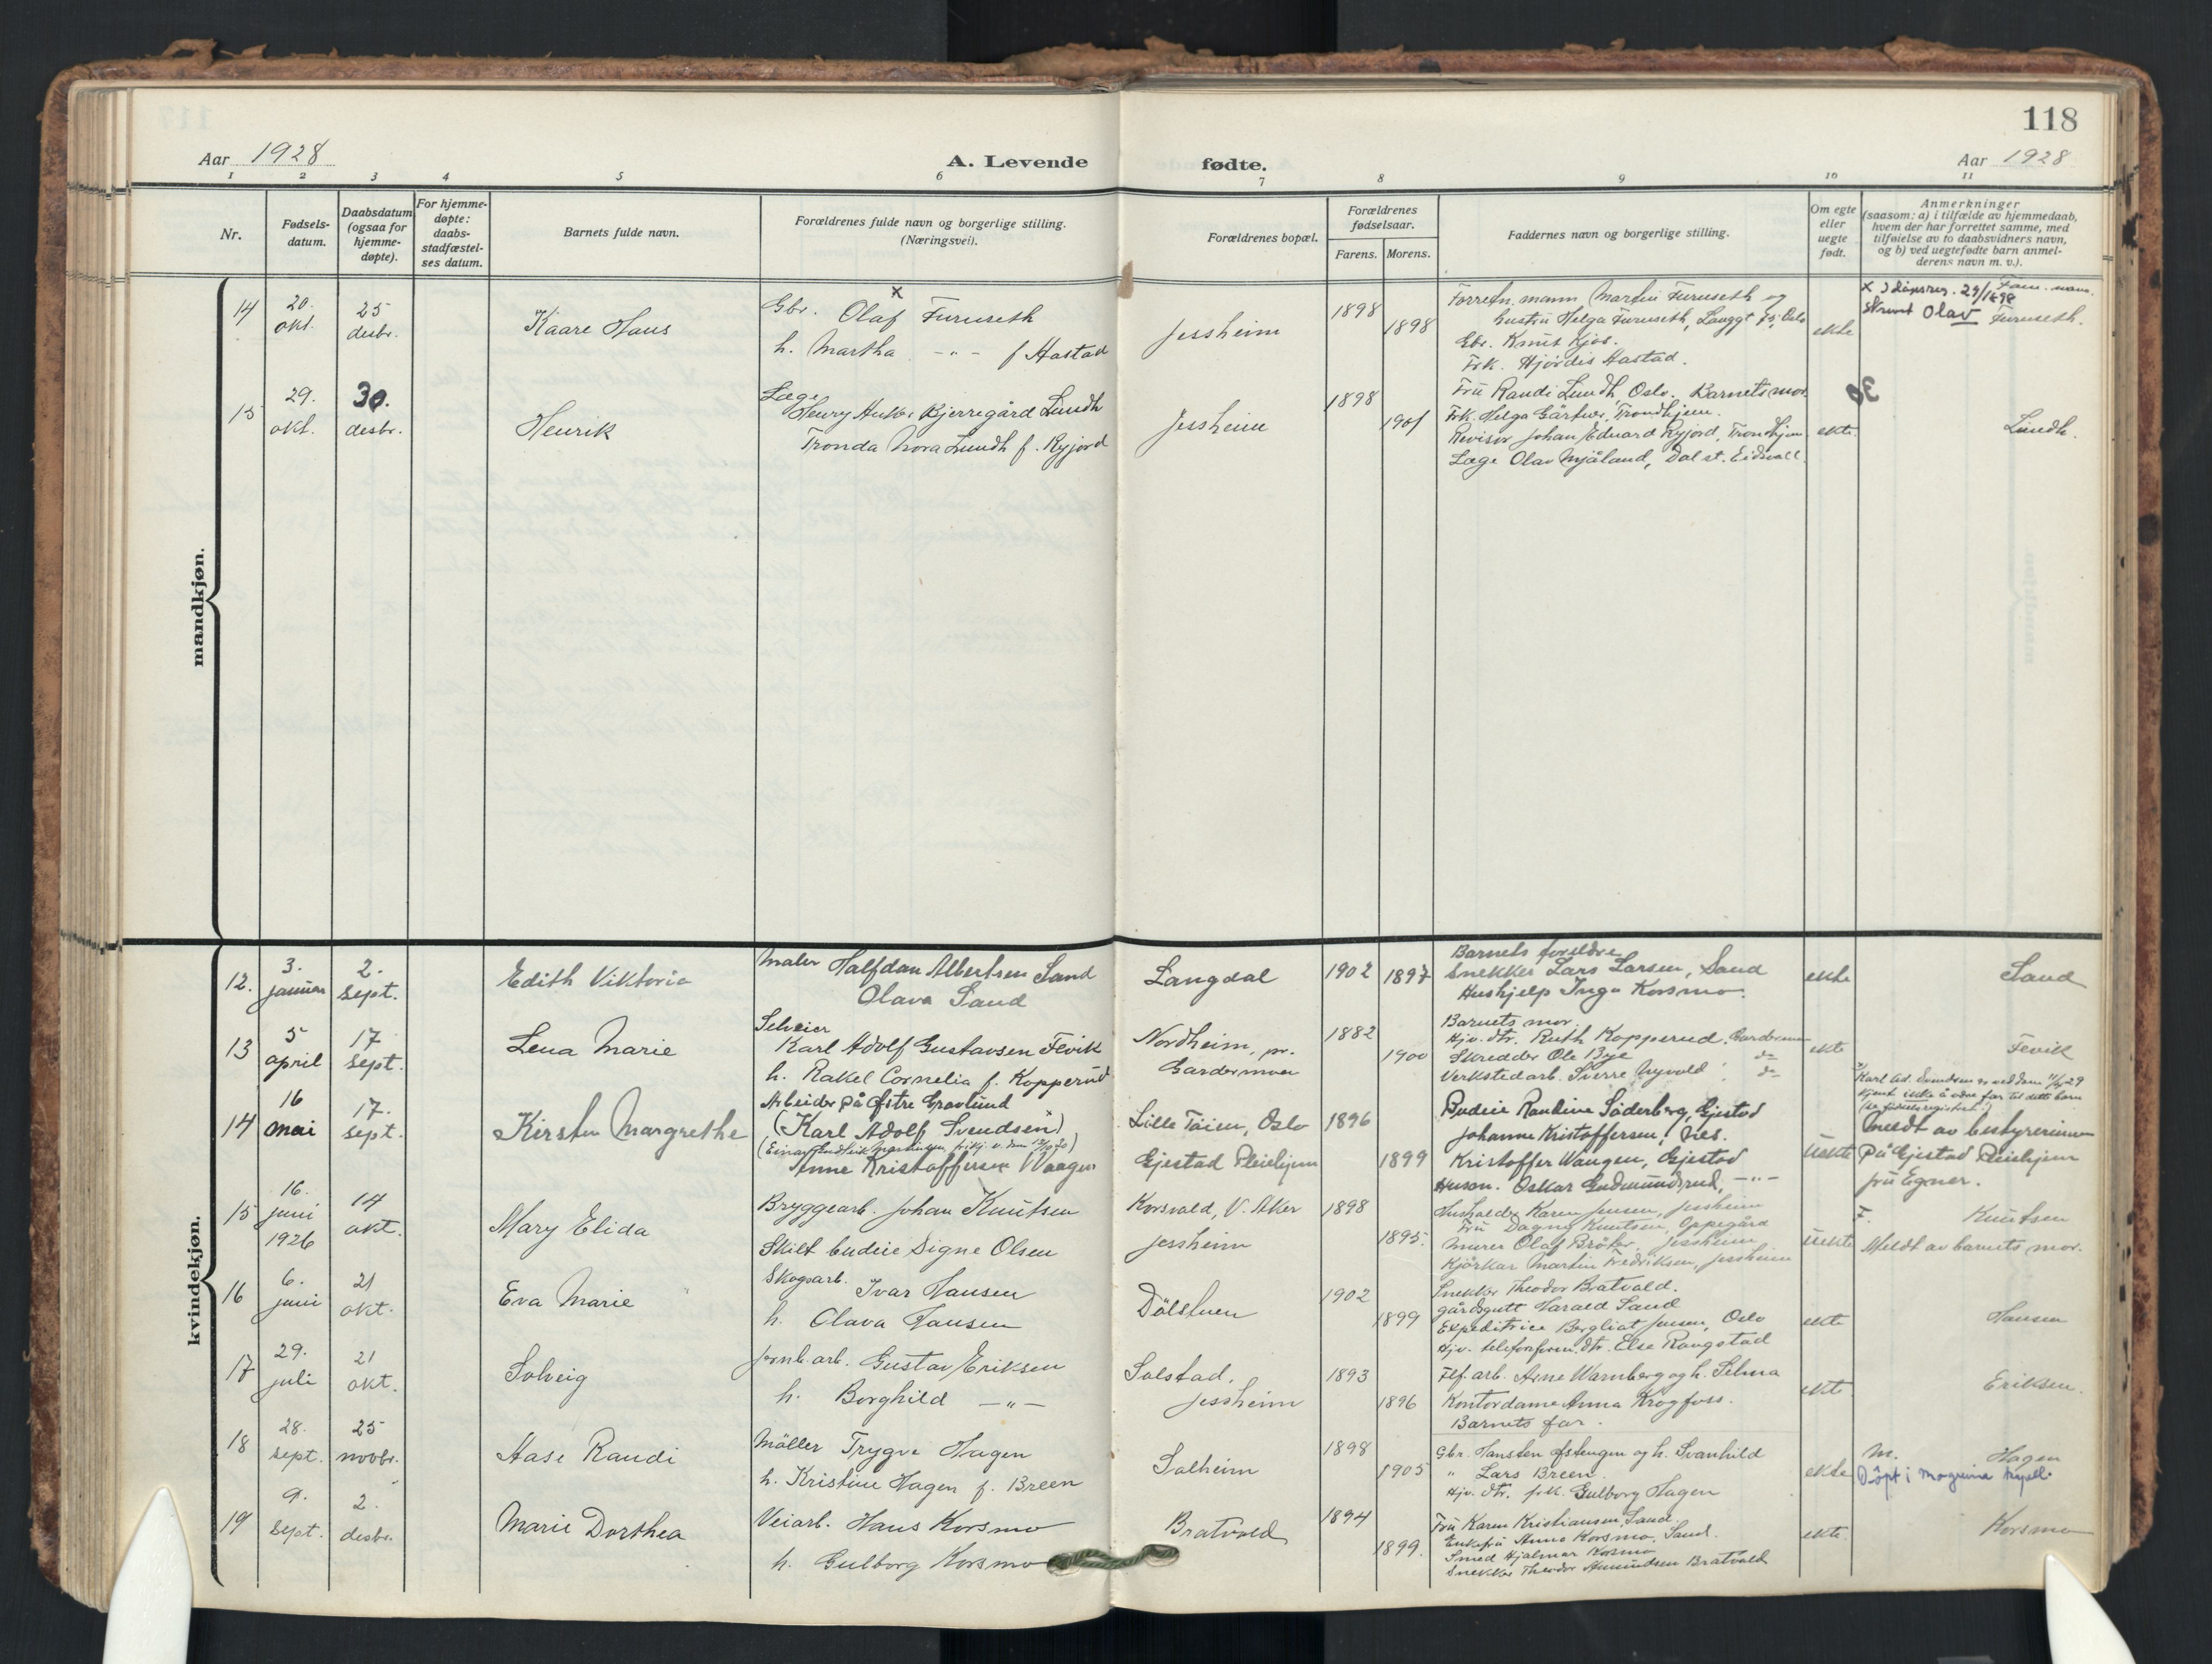 118
Aar 1928
A. Levende
fødte.
Aar 1928
1 2 3 4 5 6 7 8 9 10 11
Nr.
Fødsels-
datum.
Daabsdatum
(ogsaa for
hjemme-
døpte).
For hjemme-
døpte:
daabs-
stadfæstel-
ses datum.
Barnets fulde navn.
Forældrenes fulde navn og borgerlige stilling.
(Næringsvei).
Forældrenes bopæl.
Forældrenes
fødselsaar.
Farens. Morens.
Faddernes navn og borgerlige stilling.
Om egte
eller
uegte
født.
Anmerkninger
(saasom: a) i tilfælde av hjemmedaab,
hvem der har forrettet samme, med
tilføielse av to daabsvidners navn,
og b) ved uegtefødte barn anmel-
derens navn m. v.).
mandkjøn.
14
20.
okt.
25
desbr.
Kaare Hans
x
Gbr. Olaf Furuseth
h. Martha -"- f Hastad
Jessheim
1898
1898
Forretn. mann Martin Furuseth og
hustru Helga Furuseth, Langgt Oslo
Gbr. Knut Kjos.
Frk. Hjørdis Hastad.
ekte
x 29/1 98 Fam. navn.
skrevet Olav Furuseth.
15
29.
okt.
30.
desbr.
Henrik
Læge
Henry Bjerregård Lundh
Tronda Nora Lundh f. Ryjord
Jessheim
1898
1901
Fru Randi Lundh, Oslo. Barnets mor.
Frk. Helga Gärtner, Trondhjem.
Revisor Johan Edvard Ryjord, Trondhjem
Læge Olav Mjåland, Dal st. Eidsvoll.
ekte.
Lundh.
kvindekjøn.
12.
3.
januar
2.
sept.
Edith Viktoria
Maler Halfdan Albertsen Sand
Olava Sand
Langdal
1902
1897
Barnets foreldre
Snekker Lars Larsen, Sand
Hushjelp Inga Korsmo.
ekte
Sand
13
5
april
17.
sept.
Lena Marie
Selveier
Karl Adolf Gustavsen Fevik
h. Rakel Cornelia f. Kopperud
Nordheim, pr.
Gardermoen
1882
1900
Barnets mor.
Hjv. dtr. Ruth Kopperud, Gardermoen
Skredder Ole Bye do
Verkstedarb. Sverre Nyvold do
ekte
Fevik
14
16
mai
17.
sept.
Kirsten Margrethe
Arbeider på Østre Gravlund
(Karl Adolf Svendsen)
(Einar
Anne Kristoffersen Waagen
Lille Töien, Oslo
Gjestad Pleiehjem
1896
1899
Budeie Randine Söderberg, Gjestad
Johanne Kristoffersen, Nes.
Kristoffer Waagen, Gjestad
Husm. Oskar Gudmundsrud, -"-
uekte
Karl Ad. Svendsen er ved dom 11/4 29
kjent ikke å være far til dette barn
(se fødselsregistret.)
Meldt av bestyrerinnen
på Gjestad Pleiehjem
fru Egner.
15
16.
juni
1926
14
okt.
Mary Elida
Bryggearb. Johan Knutsen
Skilt budeie Signe Olsen
Korsvold, V. Aker
Jessheim
1898
1895.
Hushold. Karen Jensen, Jessheim
Fru Dagny Knutsen, Oppegård
Murer Olaf Bråten, Jessheim
Kjörkar Martin Fredriksen, Jessheim
uekte
F. Knutsen
Meldt av barnets mor.
16
6.
juni
21
okt.
Eva Marie
Skogsarb. Ivar Hansen
h. Olava Hansen
Dölshuen
1902
1899
Snekker Theodor Bratvold.
gårdsgutt Harald Sand
Expeditrice Bergliot Jensen, Oslo
Hjv. telefonfom. dtr. Else Rangstad
ekte
Hansen
17
29.
juli
21
okt.
Solveig
Jernb.arb. Gustav Eriksen
h. Borghild -"-
Solstad,
Jessheim
1893
1896
Tlf. arb. Arne Warnberg og h. Selma
Kontordame Anna Krogfoss.
Barnets far.
ekte
Eriksen.
18
28.
sept.
25
novbr.
Aase Randi
Möller Trygve Hagen
h. Kristine Hagen f. Breen
Solheim
1898
1905
Gbr. Hansten Østengen og h. Svanhild
" Lars Breen.
Hjv. dtr. frk. Gulborg Hagen
ekte
M. Hagen
Döpt i Mogreina kapell.
19
9.
sept.
2.
desbr.
Marie Dorthea
Veiarb. Hans Korsmo
h. Gulborg Korsmo
Bratvold
1894
1899.
Fru Karen Kristiansen, Sand.
Enkefru Anna Korsmo, Sand.
Smed Hjalmar Korsmo
Snekker Theodor Amundsen Bratvold
ekte.
Korsmo